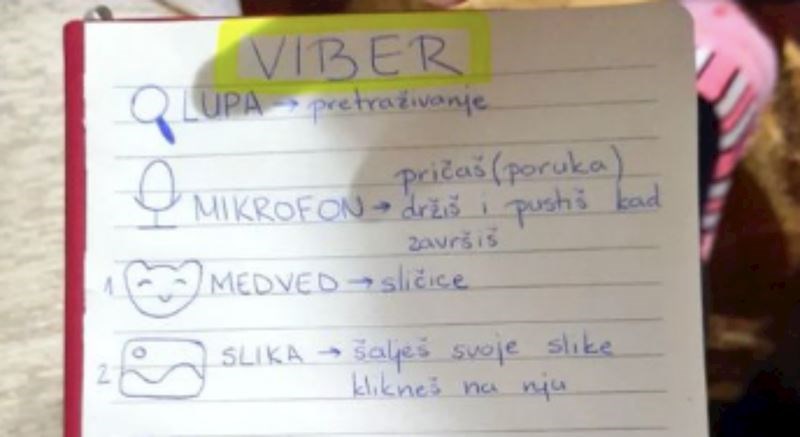 VIBER
LUPA → pretraživanje
pričaš (poruka)
MIKROFON → držiš i pustiš kad
završiš
1 MEDVED → sličice
2 SLIKA → šalješ svoje slike
klikneš na nju